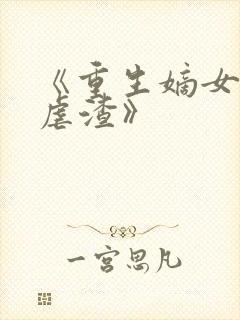 《重生嫡女
虐渣》
一宫思凡